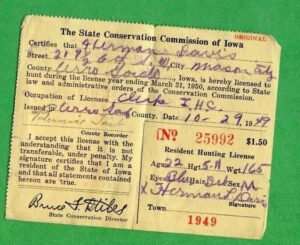 ORIGINAL
The State Conservation Commission of Iowa
Certifies that Herman Davis
Street 2172 City Mason City
County Cerro Gordo Iowa, is hereby licensed to
hunt during the license year ending March 31, 1950, according to State
law and administrative orders of the Conservation Commission.
Occupation of Licensee Clerk I.H.C.
Issued Cerro Date 10-29 1949
County Recorder
I accept this license with the
understanding that it is not
transferable, under penalty. My
signature certifies that I am a
resident of the State of Iowa
and that all statements contained
here are true.
Bruce Stiles
State Conservation Director
No 25992 $1.50
Resident Hunting License
Age 22 Hgt. Wgt. 165
Eyes Blue Hair Sex M
X Herman Davis
Signature
Town
1949